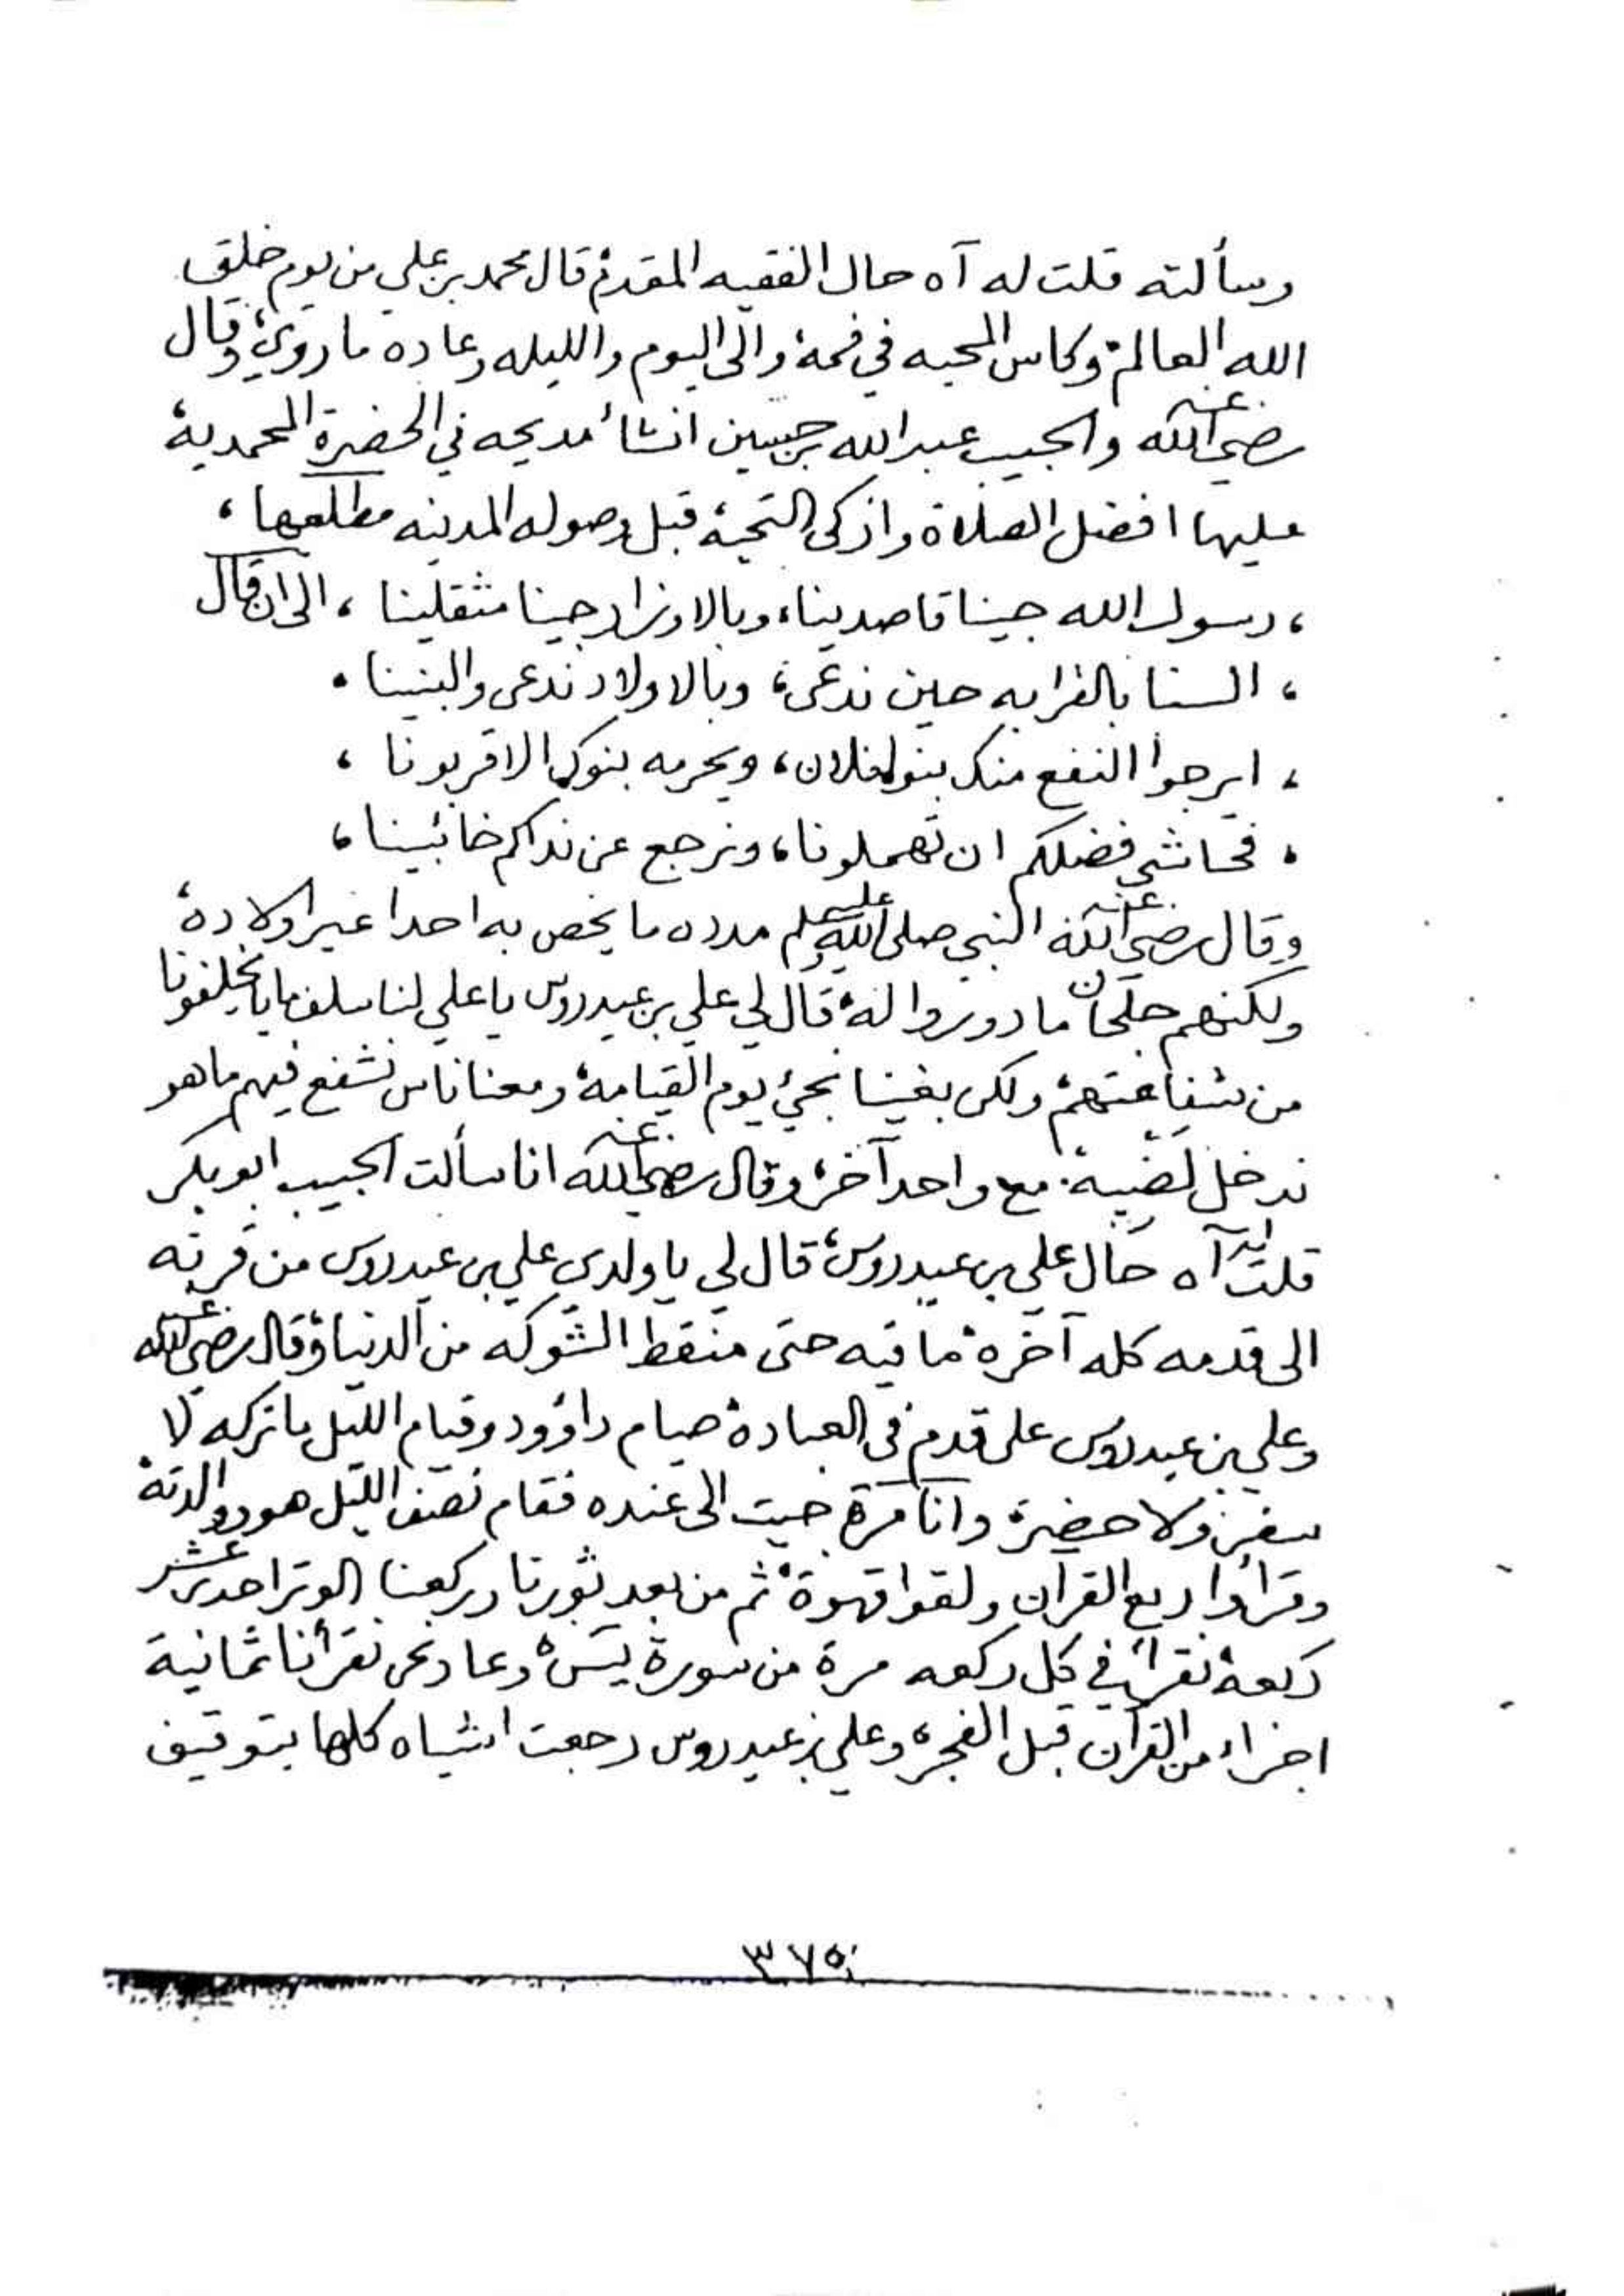 وسألته قلت له آه حال الفقيه المقدم، قال محمد بن علي من يوم خلق
الله العالم، وكاس المحبه في فمه، والى اليوم والليله وعاده ما روي، وقال
رضي الله عنه والحبيب عبدالله بن حسين انشأ مديحه في الحضرة المحمدية،
عليها افضل الصلاة وازكى التحية، قبل وصوله المدينه مطلعها،
، رسول الله جينا قاصدينا، وبالاوزار جينا مثقلينا، الى ان قال
، السنا بالقرابه حين ندعى، وبالاولاد ندعى والبنينا،
، ايرجوا النفع منك بنو فلان، ويحرمه بنوك الاقربونا،
، فحاشى فضلكم ان تهملونا، ونرجع عن نداكم خائبينا،
وقال رضي الله عنه النبي صلى الله عليه وسلم مدده ما يخص به احدا غير اولاده،
ولكنهم ما دوروا له، قال لي علي بن عيدروس يا علي لنا سلف ما با يخلفونا
من شفاعتهم، ولكن بغينا نجيء يوم القيامة، ومعنا ناس نشفع فيهم ما هو
ندخل مع واحد آخر، وقال رضي الله عنه انا سألت الحبيب ابوبكر
قلت له آه حال علي بن عيدروس، قال لي يا ولدي علي بن عيدروس من قرنه
الى قدمه كله آخرة، ما فيه حتى منقط الشوكه من الدنيا، وقال رضي الله عنه
وعلي بن عيدروس على قدم في العبادة، صيام داؤود وقيام الليل ما تركه لا
سفر، ولا حضر، وانا مرة جيت الى عنده فقام نصف الليل هو ووالدته،
وقرأوا ربع القران ولقوا قهوة، ثم من بعد ثورنا وركعنا الوتر احدى عشر
ركعة، نقرأ في كل ركعه مرة من سورة يس، وعاد نحن نقرأنا ثمانية
اجزاء من القرآن قبل الفجر، وعلي بن عيدروس رجعت اشياه كلها بتوقيف
٣٧٥